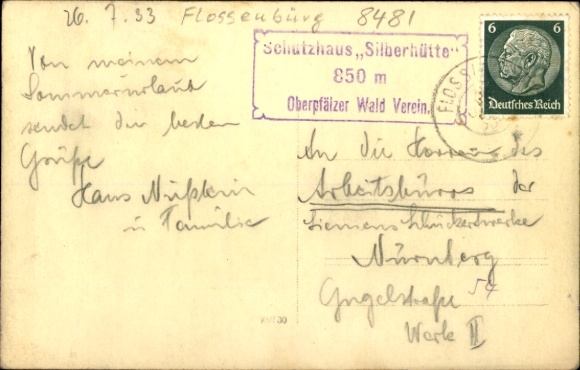 26. 7. 33 Flossenbürg 8481
Schutzhaus „Silberhütte"
850 m
Oberpfälzer Wald Verein.
6 6
Deutsches Reich
FLOSS
Von meinem
Sommerurlaub
sendet die besten
Grüße
Hans
u Familie
An die Herren des
Arbeitsbüros der
Siemens Schuckertwerke
Nürnberg
Gugelstraße 54
Werk II